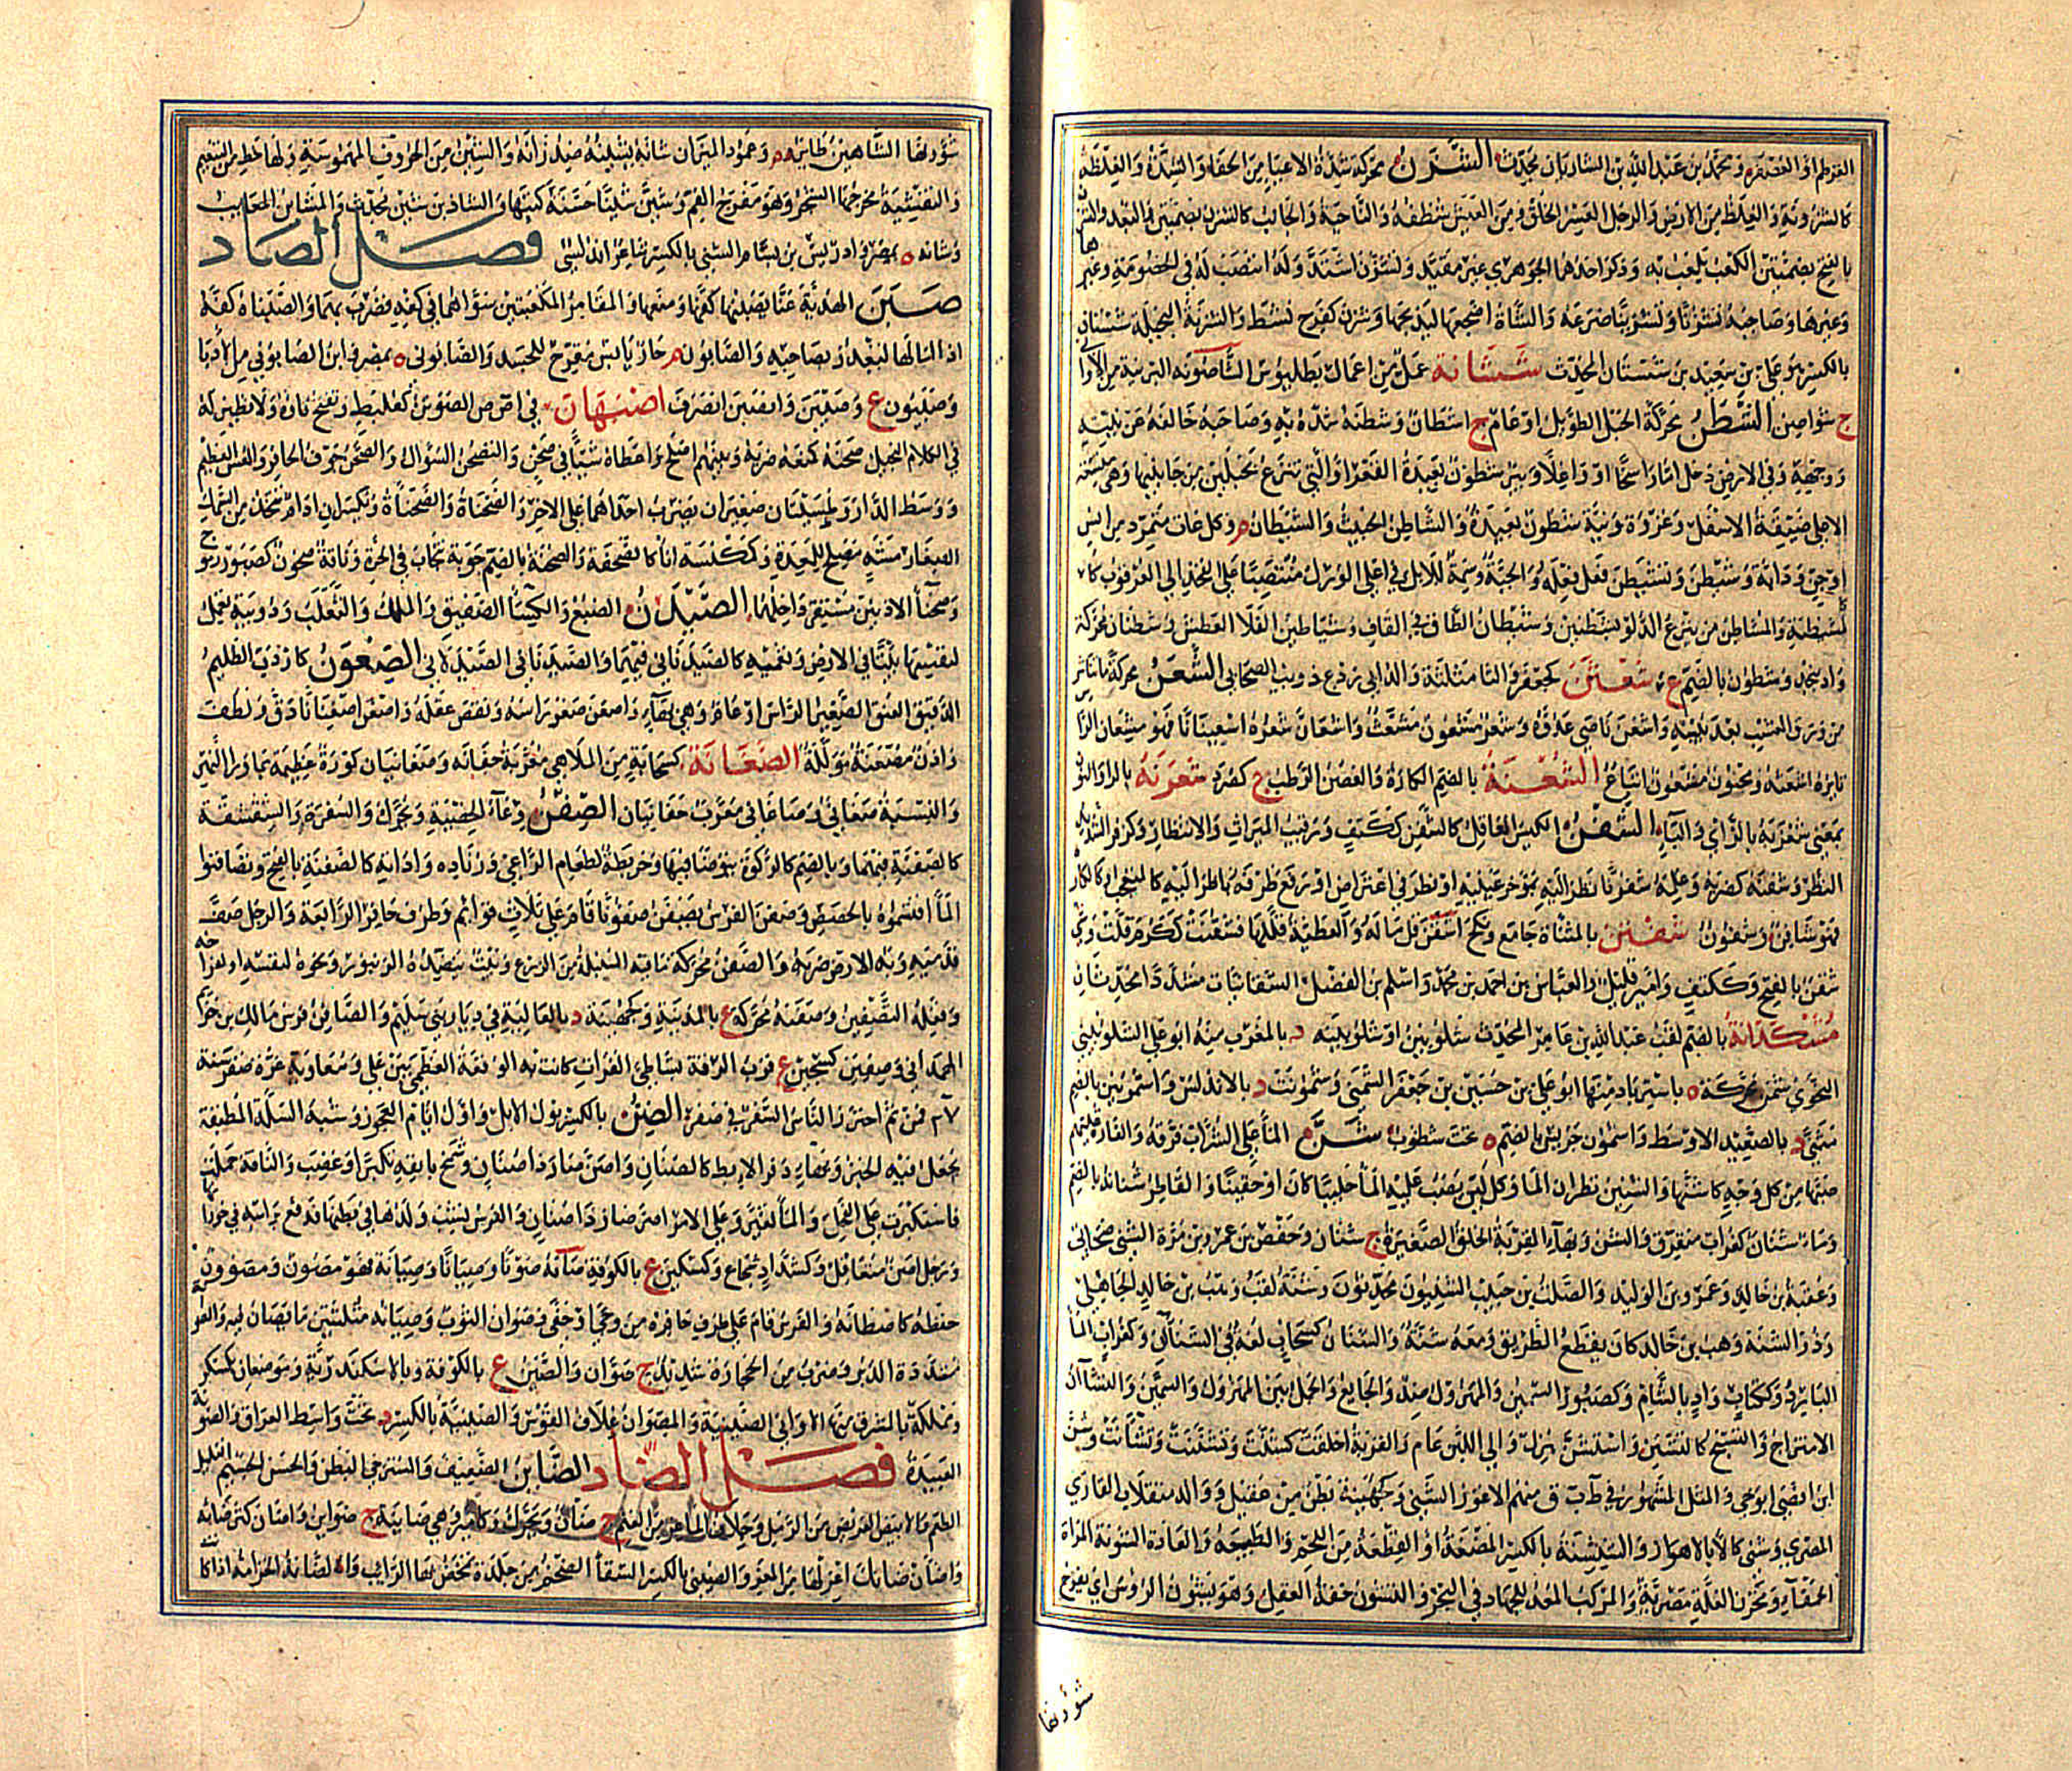 القرطم او العصفر ومحمد بن عبد الله بن الشاذيان محدث الشزن محركة شدة الاعياء من الحفا والشدة والغلظة
كالشزونة والغليظ من الارض والرجل العسر الخلق ومن العيش شظفه والناحية والجانب كالشزن بضمتين والبعد والشزن
بالفتح بضمتين الكعب يلعب به وذكر احدهما الجوهري غير مقيد وتشزن اشتد وله انتصب له في الخصومة وغيرها
وغيرها وصاحبه تشزنا وتشزينا صرعه والشاة اضجعها ليذبحها وشزن كفرح نشط والشزنة البخيلة ششتان
بالكسر علي بن سعيد بن ششتان المحدث ششانة عمل من اعمال بطليوس الشاصونة البرنية من الاواني
ج شواصين الشطن محركة الحبل الطويل او عام ج اشطان وشطنه شده به وصاحبه خالفه عن نيته
ووجهه وفي الارض دخل اما راسخا او واغلا وبئر شطون بعيدة القعر او التي تنزع بحبلين من جانبيها وهي متسعة
الاعلى ضيقة الاسفل وغزوة ونية شطون بعيدة والشاطن الخبيث والشيطان م وكل عات متمرد من انس
او جن ودابة وشيطن وتشيطن فعل فعله والحية وسمة للابل في اعلى الورك منتصبا على الفخذ الى العرقوب كا
لمشيطنة والمشاطن من ينزع الدلو بشطنين وشيطان الطاق في القاف وشياطين الفلا العطش وشطنان محركة
واد بنجد وشطون بالضم ع شعثن كجعفر والثا مثلثة والد ابي رديح ذويب الصحابي الشعن محركة ما تناثر
من ورق العشب بعد يبيسه واشعن ناصى عدوه وشعر مشعون مشعث واشعان شعره اشعينانا فهو مشعان الرا
ثايره اشعثه ومجنون مشعون اتباع الشغنة بالضم الكارة والغصن الرطب ج كصرد شغرنه بالراء والنون
بمعنى شغزبه بالزاي والباء الشفن الكيس العاقل كالشفن ككتف ورقيب الميراث والانتظار وكزفر الشديد
النظر وشفنه كضربه وعلمه شفونا نظر اليه بموخر عينيه او نظر في اعتراض او رفع طرفه ناظرا اليه كالمتعجب او كالكاره
فهو شافن وشفون شفتن بالمثناة جامع ونكح اشقن قل ماله والعطية قللها فشقنت ككرم قلت وشي
شقن بالفتح وككتف وامير قليل والعباس بن احمد بن محمد واسلم بن الفضل الشقانيان مشددا محدثان
مشكدانة بالضم لقب عبد الله بن عامر المحدث شلوبين او شلوبينة د بالمغرب منه ابو علي الشلوبيني
النحوي شمن محركة ة باستراباذ منها ابو علي بن حسين بن جعفر الشمني وشمونت د بالاندلس واشموين بالضم
مثنى د بالصعيد الاوسط واشمون جريس بالضم ة تحت شطنوف شن الماء على الشراب فرقه والغارة عليهم
صبها من كل وجه كاشنها والشنين قطران الماء وكل لبن يصب عليه الماء حليبا كان او حقينا والقاطر شنانه بالضم
وماء شنان كغراب متفرق والشن وبهاء القربة الخلق الصغيرة ج شنان وحفص بن عمر وبن مرة الشني صحابي
وعقبة بن خالد وعمرو بن الوليد والصلت بن حبيب الشنيون محدثون وشنة لقب وهب بن خالد الجاهلي
وذو الشنة وهب بن خالد كان يقطع الطريق ومعه شنة والشنان كسحاب لغة في الشنآن وكغراب الماء
البارد وككتاب واد بالشام وكصبور السمين والمهزول ضد والجايع والجمل بين المهزول والسمين والتشان
الامتزاج والتشنج كالتشنن واستشن هزل والى اللبن عام والقربة اخلقت كشنت وتشننت وتشانت وشن
ابن افصى ابو حي والمثل المشهور في ط ب ق منهم الاعور الشني وكجهينة بطن من عقيل ووالد سقلاب القاري
المصري وشنى كالا بالاهواز والشنشنة بالكسر المضغة او القطعة من اللحم والطبيعة والعادة الشونة المراة
الحمقاء ومخزن الغلة مصرية والمركب المعد للجهاد في البحر والتشون خفة العقل وهو يشون الروس اي يفرج
شوونها
شوونها الشاهين طاير م وعمود الميزان شانه يشينه ضد زانه والشين من الحروف المهموسة ولها حظ من التنعيم
والتفشية مخرجها الشجر وهو مفرج الفم وشين شينا حسنة كتبها والشاذ بن شين محدث والمشاين المعايب
وشانه ة بمصر وادريس بن بسام الشيني بالكسر شاعر اندلسي فصل الصاد
صبن الهدية عنا يصبنها كفها ومنعها والمقامر الكعبتين سواهما في كفه فضرب بهما والصبناء كفه
اذا امالها ليغدر بصاحبه والصابون م حار يابس مقرح للجسد والصابوني ة بمصر وابن الصابوني من الادباء
وصبيون ع وصبين واصبن انصرف اصبهان في اص ص الصتوتن كعلبط وتفتح تاءه ولا نظير له
في الكلام البخيل صحنه كمنعه ضربه وبينهم اصلح واعطاه شيا في صحن والتصحن السوال والصحن جوف الحافر والعس العظيم
ووسط الدار وطسيتان صغيران يضرب احدهما على الاخر والصحناة والصحناءة ويكسران ادام يتخذ من السمك
الصغار مشه مصلح للمعدة وكمكنسة اناء كالصحفة والصحنة بالضم جوبة تنجاب في الحرة وناقة صحون كصبور رموح
وصحنا الاذنين مستقر داخلهما الصيدن الضبع والكساء الصفيق والملك والثعلب ودويبة تعمل
لنفسها بيتا في الارض وتعميه كالصيدناني فيهما والصيدناني الصيدلاني الصعون كارزب الظليم
الدقيق العنق الصغير الراس او عام وهي بهاء واصعن صغر راسه ونقص عقله واصعن اصعنانا دق ولطف
واذن مصعنة مولدة الصغانة كسحابة من الملاهي معربة جغانه وصغانيان كورة عظيمة بما ورا النهر
والنسبة صغاني وصاغاني معرب جغانيان الصفن وعاء الخصية ويحرك والسفرة والشقشقة
كالصفنة فيهما وبالضم كالركوة يتوضا فيها وخريطة لطعام الراعي وزناده واداته كالصفنة بالفتح وتصافنوا
الماء اقتسموه بالحصص وصفن الفرس يصفن صفونا قام على ثلاث قوائم وطرف حافر الرابعة والرجل صف
قدميه وبه الارض ضربه والصفن محركة ما فيه السنبلة من الزرع وبيت ينضده الزنبور ونحوه لنفسه او لفراخه
وفعله التصفين وصفنة محركة ع بالمدينة وكجهينة د بالعالية في ديار بني سليم والصافن فرس مالك بن خزيم
الهمداني وصفين كسجين ع قرب الرقة بشاطئ الفرات كانت به الوقعة العظمى بين علي ومعاوية غرة صفر سنة
٣٧ فمن ثم احترز الناس السفر في صفر الصن بالكسر بول الابل واول ايام العجوز وشبه السلة المطبقة
يجعل فيه الخبز وبهاء ذفر الابط كالصنان واصن صار ذا صنان وشمخ بانفه تكبرا وغضب والناقة حملت
فاستكبرت على الفحل والماء تغير وعلى الامر اصر وصار ذا صنان والفرس نشب ولدها في بطنها فدفع براسه في خورانها
ورجل اصن متغافل وكشداد شجاع وكسكين ع بالكوفة صانه صونا وصيانا وصيانة فهو مصون ومصوون
حفظه كاصطانه والفرس قام على طرف حافره من وجى او حفى وصوان الثوب وصيانه مثلثتين ما يصان فيه والصوانة
مشددة الدبر وضرب من الحجارة شديد ج صوان والصين ع بالكوفة وبالاسكندرية وموضعان بكسكر
ومملكة بالمشرق منها الاواني الصينية والمصوان غلاف القوس والصينية بالكسر د تحت واسط العراق والصونة
العتيدة فصل الضاد الضاين الضعيف والمسترخي البطن والحسن الجسم القليل
الطعم والابيض العريض من الرمل وخلاف الماعز من الغنم ج ضان ويحرك وكامير وهي ضاينة ج ضواين واضان كثر ضانه
واضان ضانك اعزلها من المعز والضئني بالكسر السقاء الضخم من جلدة يمخض بها الرايب والضانة الخزامة اذا كا